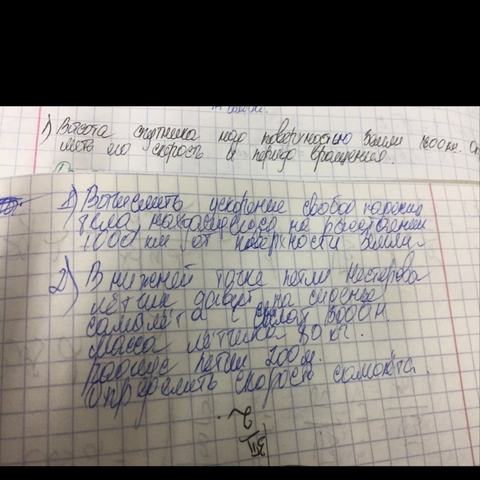 1) Высота спутника над поверхностью Земли 1600 км. Оп
его скорость и период вращения.
1) Вычислить ускорение свобод падения
тела, находящегося на расстоянии
1000 км от поверхности Земли.
2) В нижней точке петли Нестерова
лётчик давит на сиденье
самолёта силой
масса лётчика 80 кг.
радиус петли 200 м.
Определить скорость самолёта.